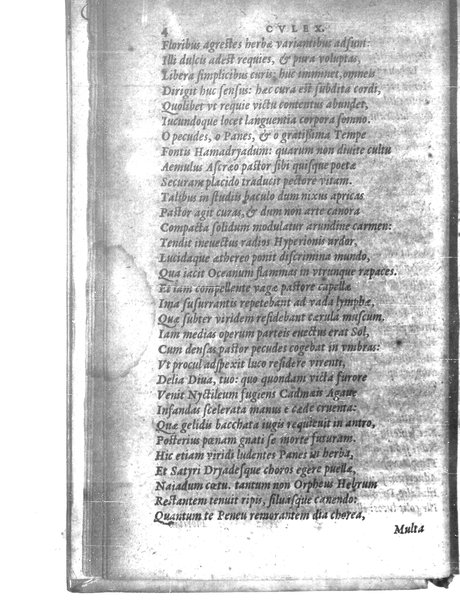 4 CVLEX.
Floribus agrestes herbæ variantibus adsint:
Illi dulcis adest requies, & pura voluptas,
Libera simplicibus curis; huc imminet, omneis
Dirigit huc sensus: hæc cura est subdita cordi,
Quolibet vt requie victu contentus abundet,
Iucundoque locet languentia corpora somno.
O pecudes, o Panes, & o gratissima Tempe
Fontis Hamadryadum: quarum non diuite cultu
Aemulus Ascræo pastor sibi quisque poetæ
Securam placido traducit pectore vitam.
Talibus in studiis baculo dum nixus apricas
Pastor agit curas, & dum non arte canora
Compacta solidum modulatur arundine carmen:
Tendit ineuectus radios Hyperionis ardor,
Lucidaque æthereo ponit discrimina mundo,
Qua iacit Oceanum flammas in vtrunque rapaces.
Et iam compellente vagæ pastore capellæ
Ima susurrantis repetebant ad vada lymphæ,
Quæ subter viridem residebant cærula muscum,
Iam medias operum parteis euectus erat Sol,
Cum densas pastor pecudes cogebat in vmbras:
Vt procul adspexit luco residere virenti,
Delia Diua, tuo: quo quondam victa furore
Venit Nyctileum fugiens Cadmais Agaue
Infandas scelerata manus e cæde cruenta:
Quæ gelidis bacchata iugis requieuit in antro,
Posterius pœnam gnati se morte futuram.
Hic etiam viridi ludentes Panes in herba,
Et Satyri Dryadesque choros egere puellæ,
Naiadum cœtu. tantum non Orpheus Hebrum
Restantem tenuit ripis, siluasque canendo:
Quantum te Peneu remorantem dia chorea,
Multa